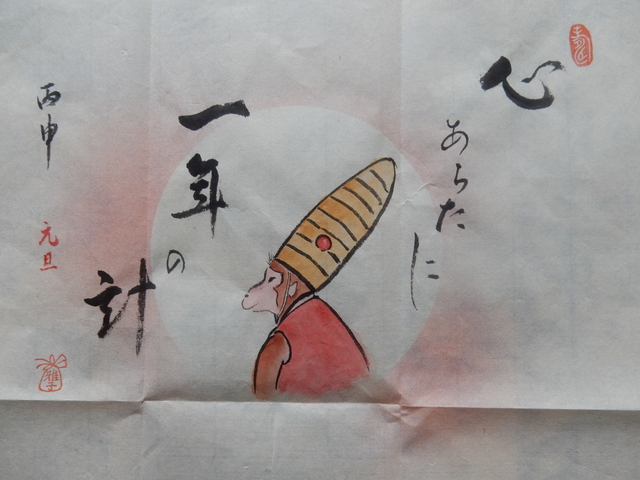 心
あらたに
一年
の
計
丙申
元旦